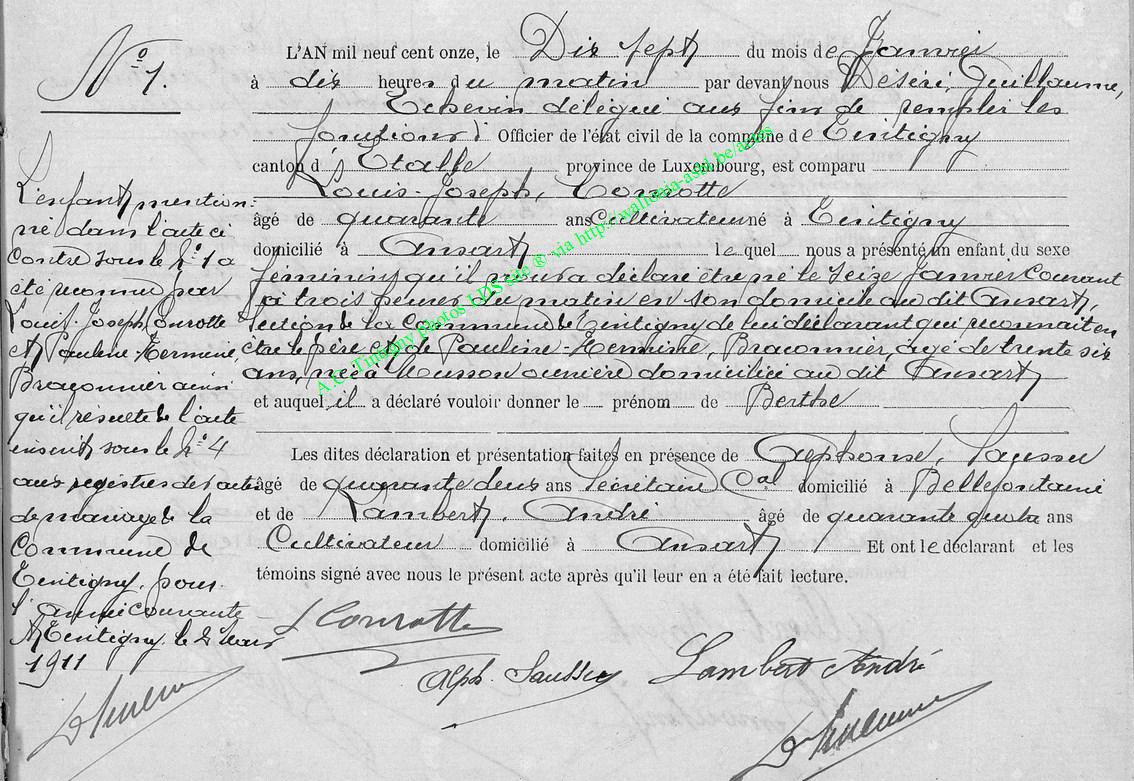 N° 1.
L'AN mil neuf cent onze, le Dix sept du mois de Janvier
à dix heures du matin par devant nous Désiré, Guillaume,
Echevin délégué aux fins de remplir les
fonctions d' Officier de l'état civil de la commune de Tintigny
canton d' Etalle province de Luxembourg, est comparu
Louis-Joseph, Conrotte
âgé de quarante ans Cultivateur né à Tintigny
domicilié à Ansart lequel nous a présenté un enfant du sexe
féminin qu'il nous a déclaré être né le seize Janvier Courant
à trois heures du matin en son domicile au dit Ansart,
section de la Commune de Tintigny de lui déclarant qui reconnait en
être le père et de Pauline-Hermine, Braconnier, agé de trente six
ans, née à Musson ouvrière domiciliée au dit Ansart
et auquel il a déclaré vouloir donner le prénom de Berthe
Les dites déclaration et présentation faites en présence de Alphonse, Saussu
âgé de quarante deux ans Secrétaire Cal domicilié à Bellefontaine
et de Lambert, André âgé de quarante quatre ans
Cultivateur domicilié à Ansart Et ont le déclarant et les
témoins signé avec nous le présent acte après qu'il leur en a été fait lecture.
L'enfant mention-
né dans l'acte ci
contre sous le N° 1 a
été reconnu par
Louis-Joseph, Conrotte
et Pauline-Hermine,
Braconnier ainsi
qu'il résulte de l'acte
inscrit sous le N° 4
aux registres de l'acte
de mariage de la
Commune de
Tintigny, pour
l'année courante
A Tintigny, le 2 Mars
1911
L Conrotte
Alph. Saussu
Lambert André
A.E. Tintigny photos LDS site ® via http://wallonia-asbl.be/actes